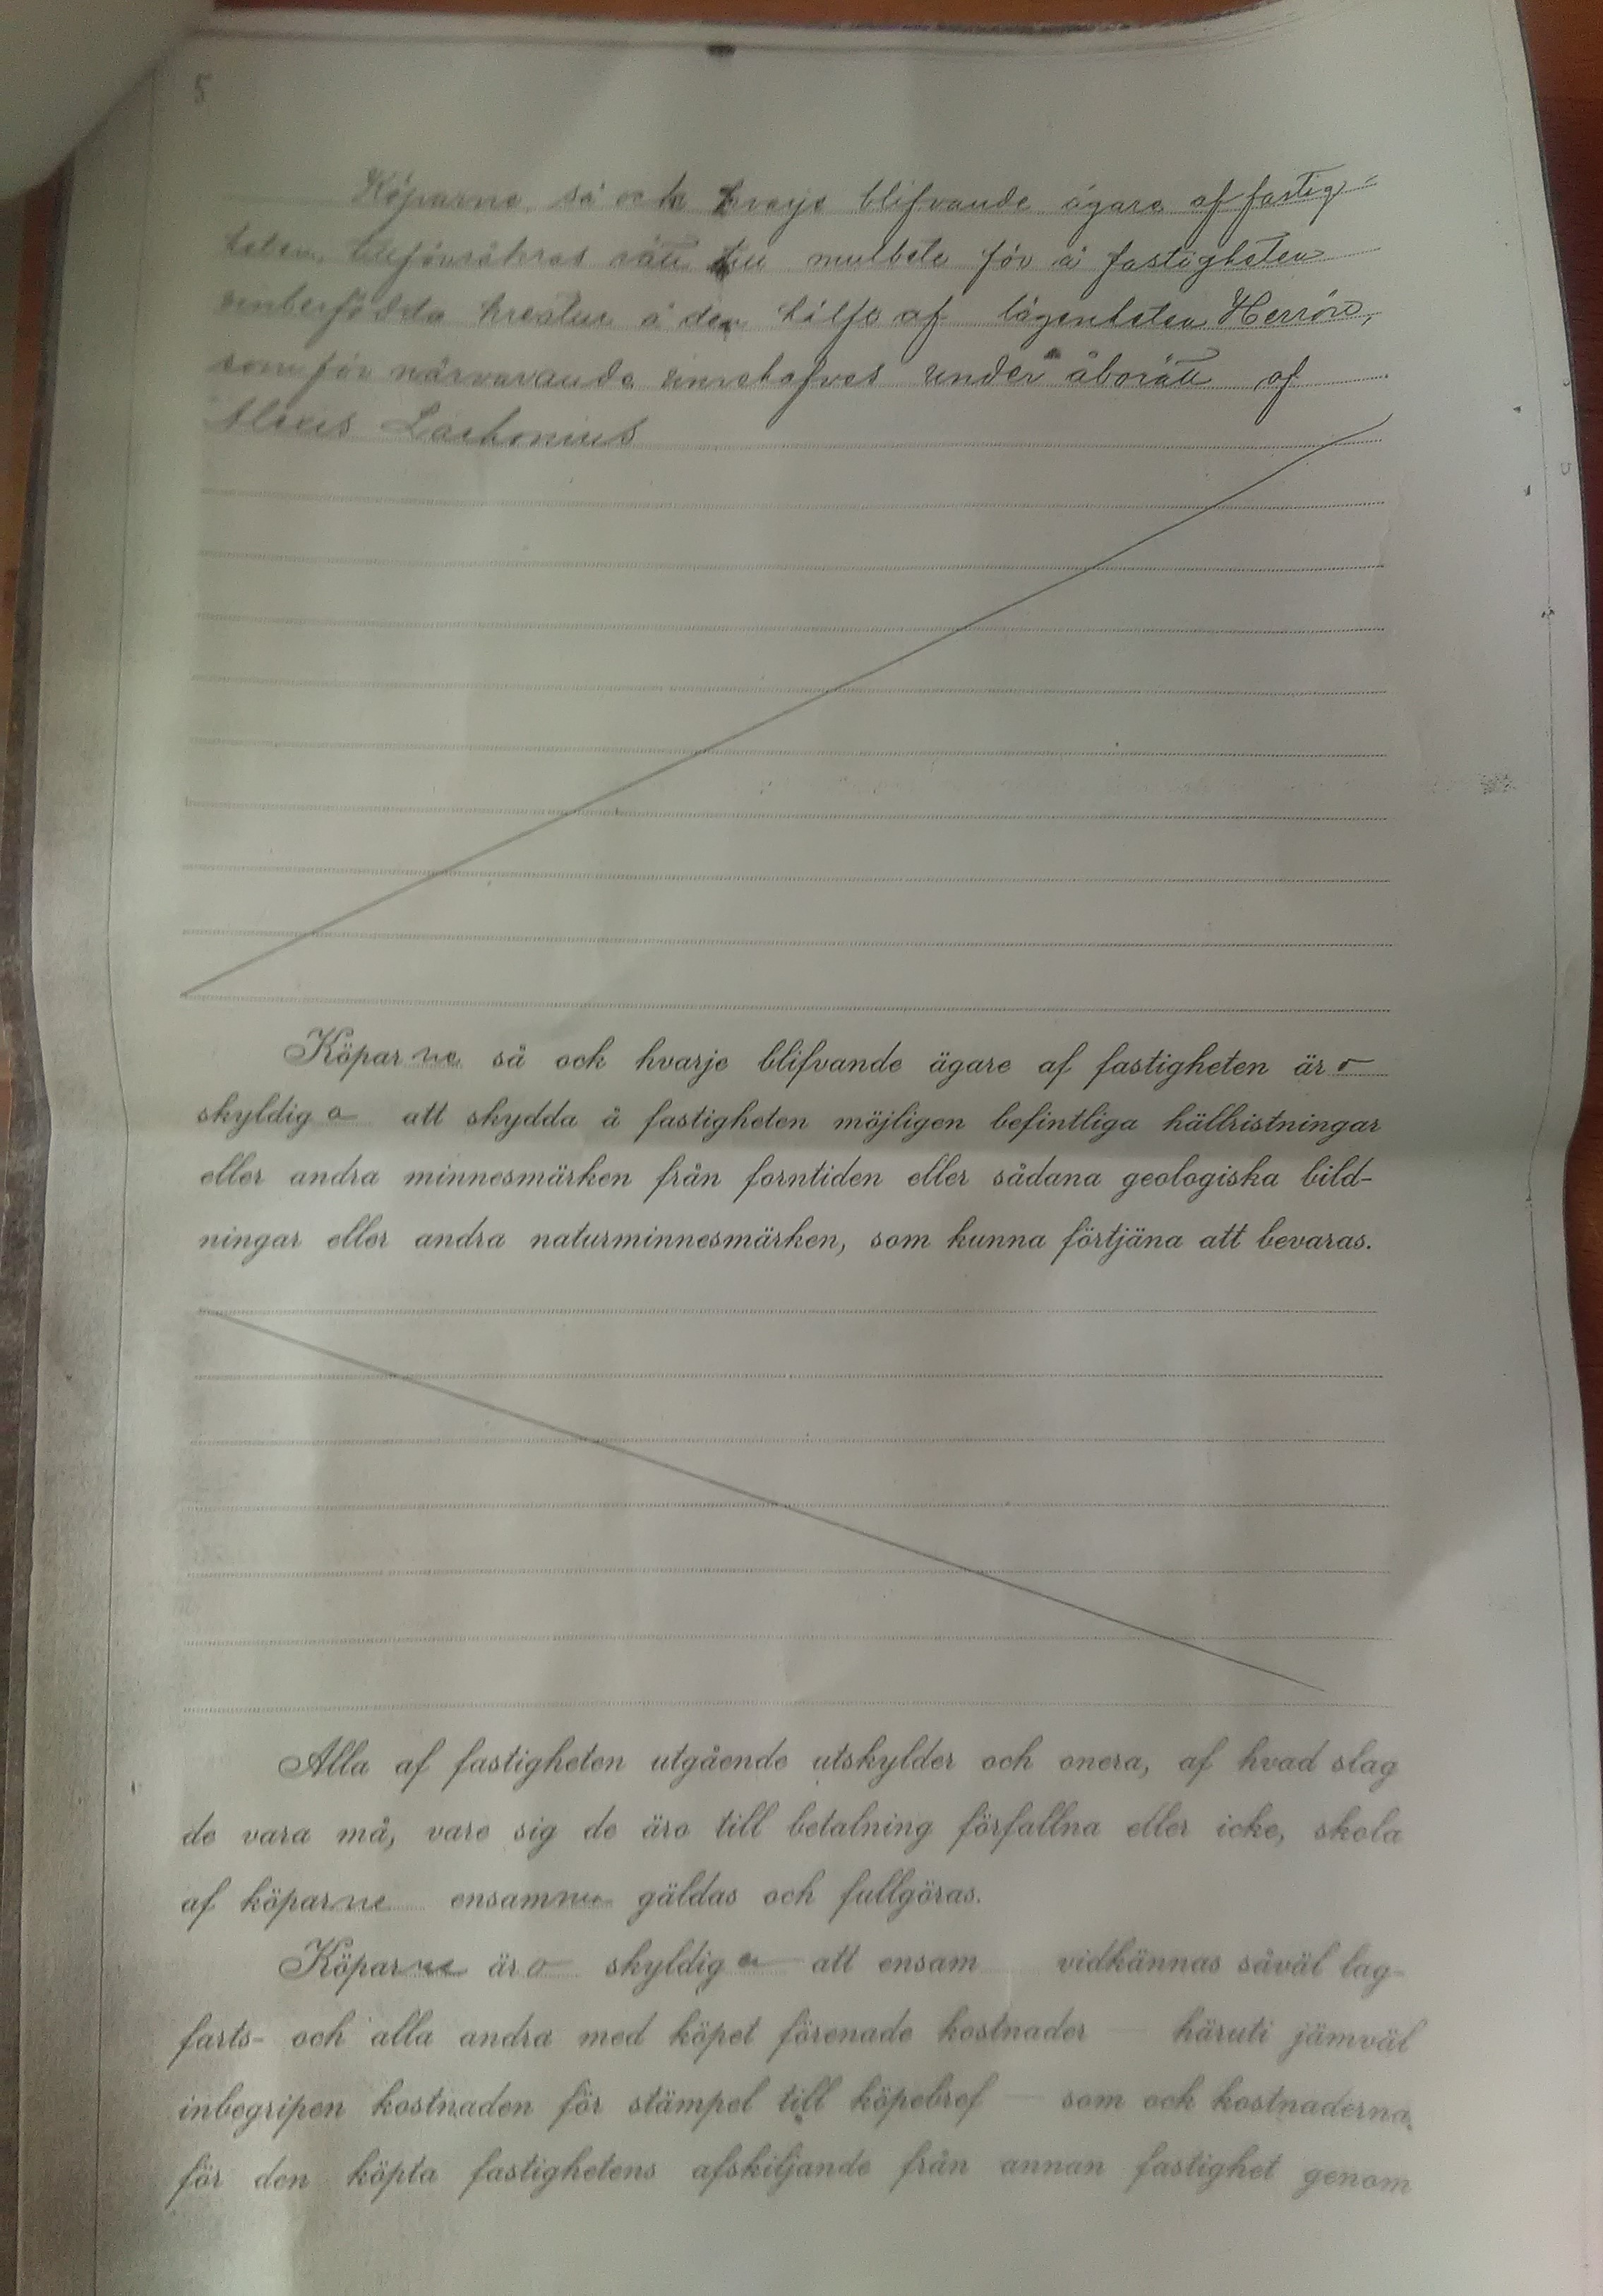 5
Köparne så ock hvarje blifvande ägare af fastig-
heten, tillförsäkras rätt till mulbete för å fastigheten
vinterfödda kreatur å den hälft af lägenheten Herrön,
som för närvarande innehafves under åborätt af
Alexis
Köparne så ock hvarje blifvande ägare af fastigheten äro
skyldiga att skydda å fastigheten möjligen befintliga hällristningar
eller andra minnesmärken från forntiden eller sådana geologiska bild-
ningar eller andra naturminnesmärken, som kunna förtjäna att bevaras.
Alla af fastigheten utgående utskylder och onera, af hvad slag
de vara må, vare sig de äro till betalning förfallna eller icke, skola
af köparne ensamma gäldas och fullgöras.
Köparne äro skyldiga att ensam vidkännas såväl lag-
farts- och alla andra med köpet förenade kostnader — häruti jämväl
inbegripen kostnaden för stämpel till köpebref — som ock kostnaderna
för den köpta fastighetens afskiljande från annan fastighet genom